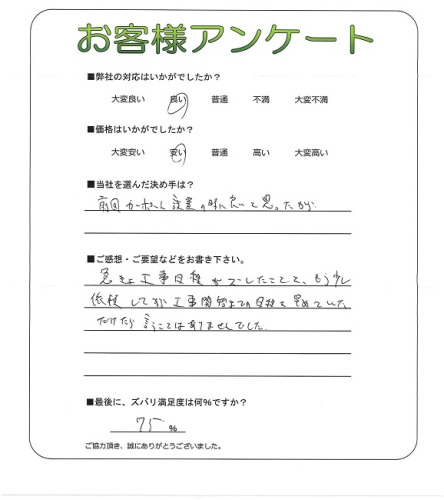 お客様アンケート
■弊社の対応はいかがでしたか？
大変良い 良い 普通 不満 大変不満
■価格はいかがでしたか？
大変安い 安い 普通 高い 大変高い
■当社を選んだ決め手は？
前回カーポート設置の時に良いと思ったから
■ご感想・ご要望などをお書き下さい。
急きょ工事日程が したことで、もう少し
してから工事開始までの日程を 
だけたら言うことはありませんでした。
■最後に、ズバリ満足度は何%ですか？
75 %
ご協力頂き、誠にありがとうございました。